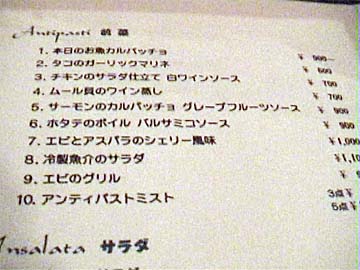 Antipasti 前菜
1. 本日のお魚カルパッチョ ¥ 900
2. タコのガーリックマリネ ¥ 600
3. チキンのサラダ仕立て 白ワインソース ¥ 700
4. ムール貝のワイン蒸し ¥ 700
5. サーモンのカルパッチョ グレープフルーツソース ¥ 900
6. ホタテのボイル バルサミコソース ¥ 900
7. エビとアスパラのシェリー風味 ¥1,000
8. 冷製魚介のサラダ ¥1,10
9. エビのグリル ¥ 9
10. アンティパストミスト 3点¥
5点¥
Insalata サラダ